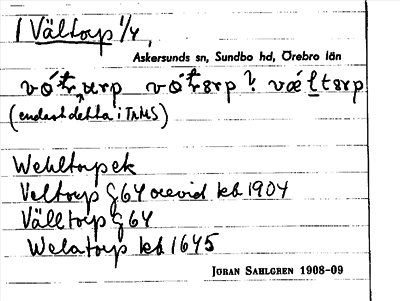 1 Vältorp 1/4,
Askersunds sn, Sundbo hd, Örebro län
vǽltsrp
(endast detta i TrMS)
Wehltorp ek
Veltorp G64 ovevid kb 1904
Välltorp G64
Welatorp kb 1645
JÖRAN SAHLGREN 1908-09